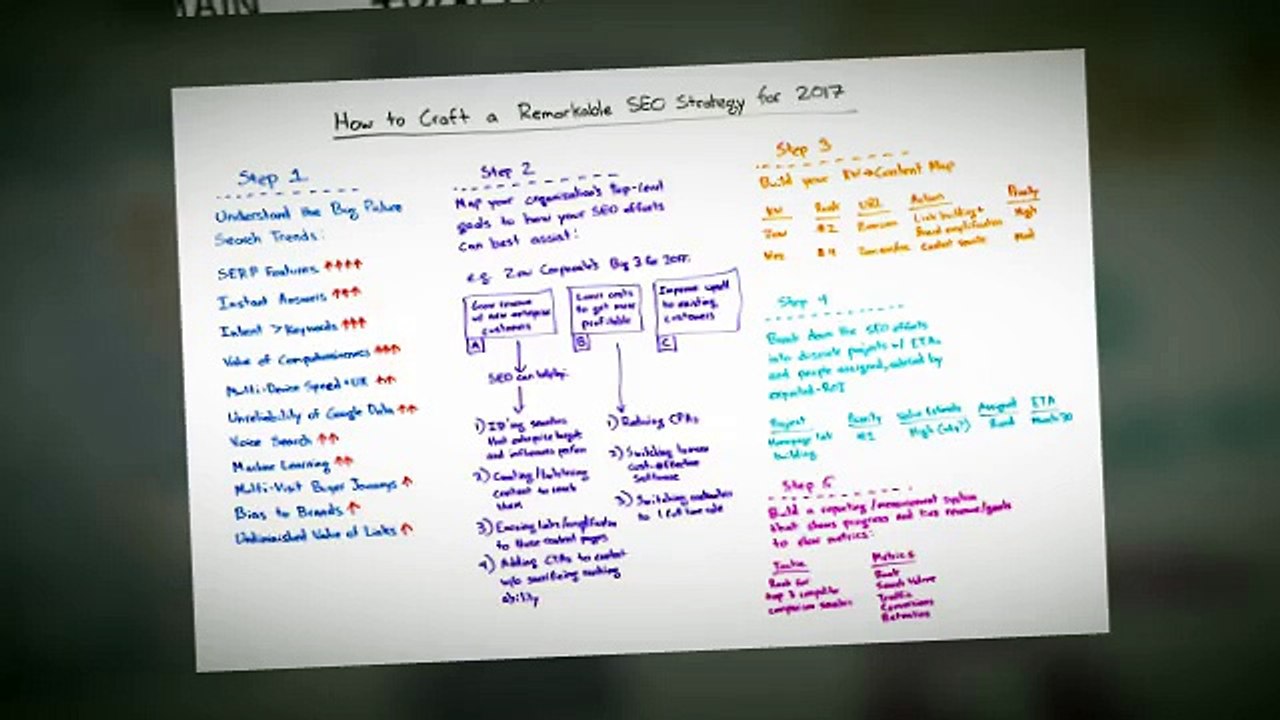 How to Craft a Remarkable SEO Strategy for 2017
Step 1
Understand the Big Picture
Search Trends:
SERP Features
Instant Answers
Intent > Keywords
Value of Comprehensiveness
Multi-Device Speed + UX
Unreliability of Google Data
Voice Search
Machine Learning
Multi-Visit Buyer Journeys
Bias to Brands
Undiminished Value of Links
Step 2
Map your organization's top-level
goals to how your SEO efforts
can best assist:
e.g. Zow Corporate's Big 3 for 2017:
Grow revenue
w/ new enterprise
customers
A
Lower costs
to get more
profitable
B
Improve upsell
to existing
customers
C
SEO can help by:
1) ID'ing searches
that enterprise
and influencers perform
2) Creating/
content to reach
them
3)
to those content pages
4) Adding CTAs to content
w/o sacrificing ranking
ability
1) Reducing CPAs
2) Switching to more
cost-effective
software
3) Switching
to 1
Step 3
Build your KW→Content Map
KW Rank URL Action Priority
#2 Link building + High
Brand amplification
Content Med
Step 4
Break down the SEO efforts
into discrete projects w/ ETAs
and people assigned, by
expected-ROI
Project Priority Value Estimate Assigned ETA
Homepage link #1 High (why?) Rand March 30
building
Step 5
Build a reporting/measurement system
that shows progress and ties revenue/goals
to metrics:
Metrics
Rank for Rank
top 3 Search Volume
comparison searches Traffic
Conversions
Retention